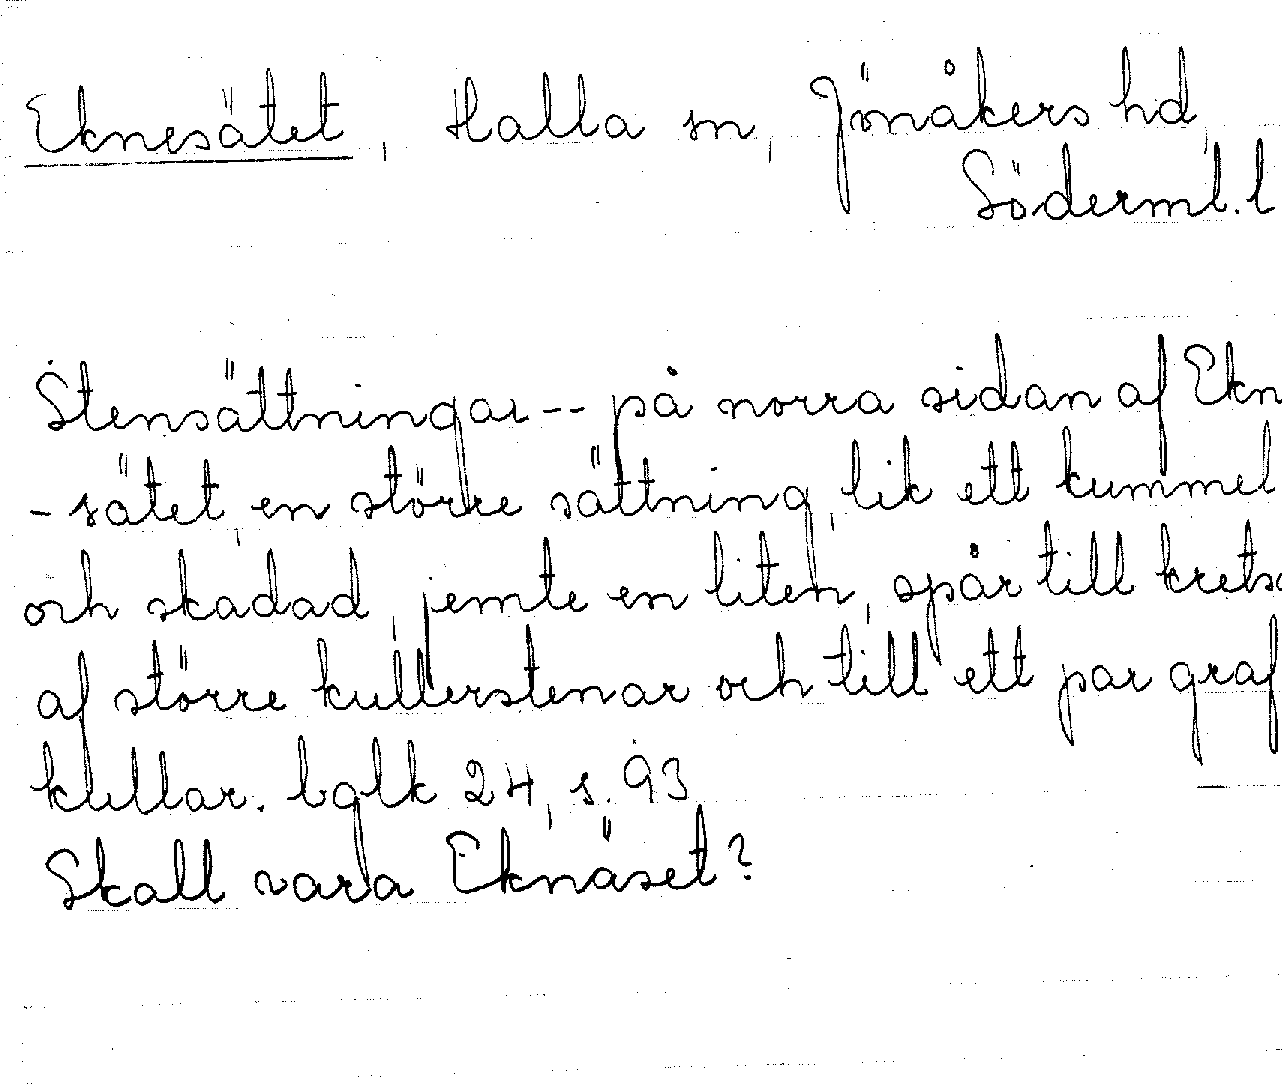 Eknesätet, Halla sn, Jönåkers hd,
Söderml. l
Stensättningar -- på norra sidan af Ekn
- sätet, en större sättning, lik ett kummel
och skadad, jemte en liten, spår till krets
af större kullerstenar och till ett par graf
kullar. balk 24, s. 93
Skall vara Eknäset?